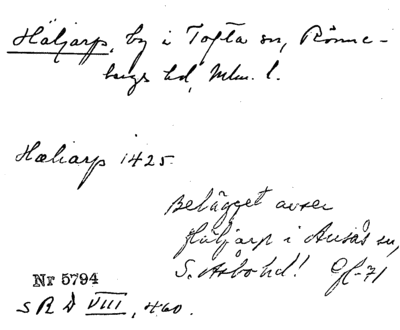 Häljarp, by i Tofta sn, Rönne-
bergs hd, Mlm. l.
Hæliarp 1425.
Belägget avser
Häljarp i Ausås sn,
S. Åsbo hd! Gf-71
Nr 5794
SRD VIII, 460.